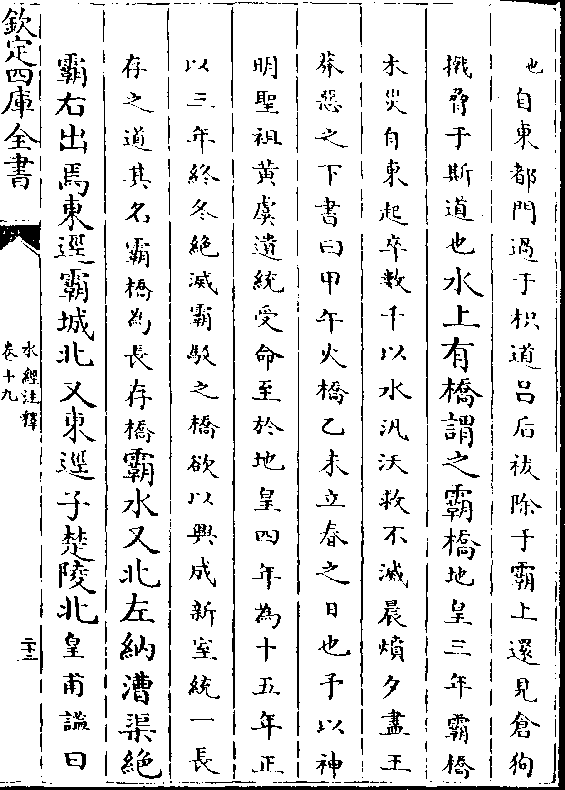 也自東都門過于枳道吕后祓除于霸上還見倉狗
㨖脅于斯道也水上有橋謂之霸橋地皇三年霸橋
木災自東起卒數千以水汎沃救不滅晨燌夕盡王
莽惡之下書曰甲午火橋乙未立春之日也予以神
明聖祖黄虞遺統受命至於地皇四年為十五年正
以三年終冬絶滅霸駮之橋欲以興成新室統一長
存之道其名霸橋為長存橋霸水又北左納漕渠絶
霸右出焉東逕霸城北又東逕子楚陵北皇甫謐曰
欽定四庫全書
水經注釋
卷十九
二十三